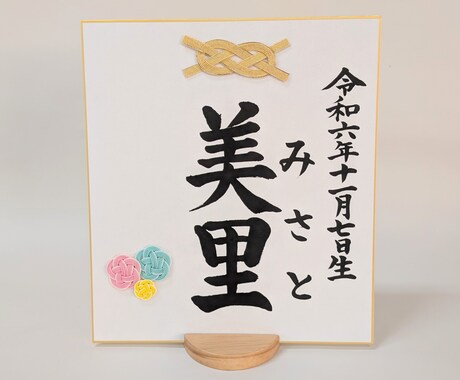 令和六年十一月七日生
みさと
美里